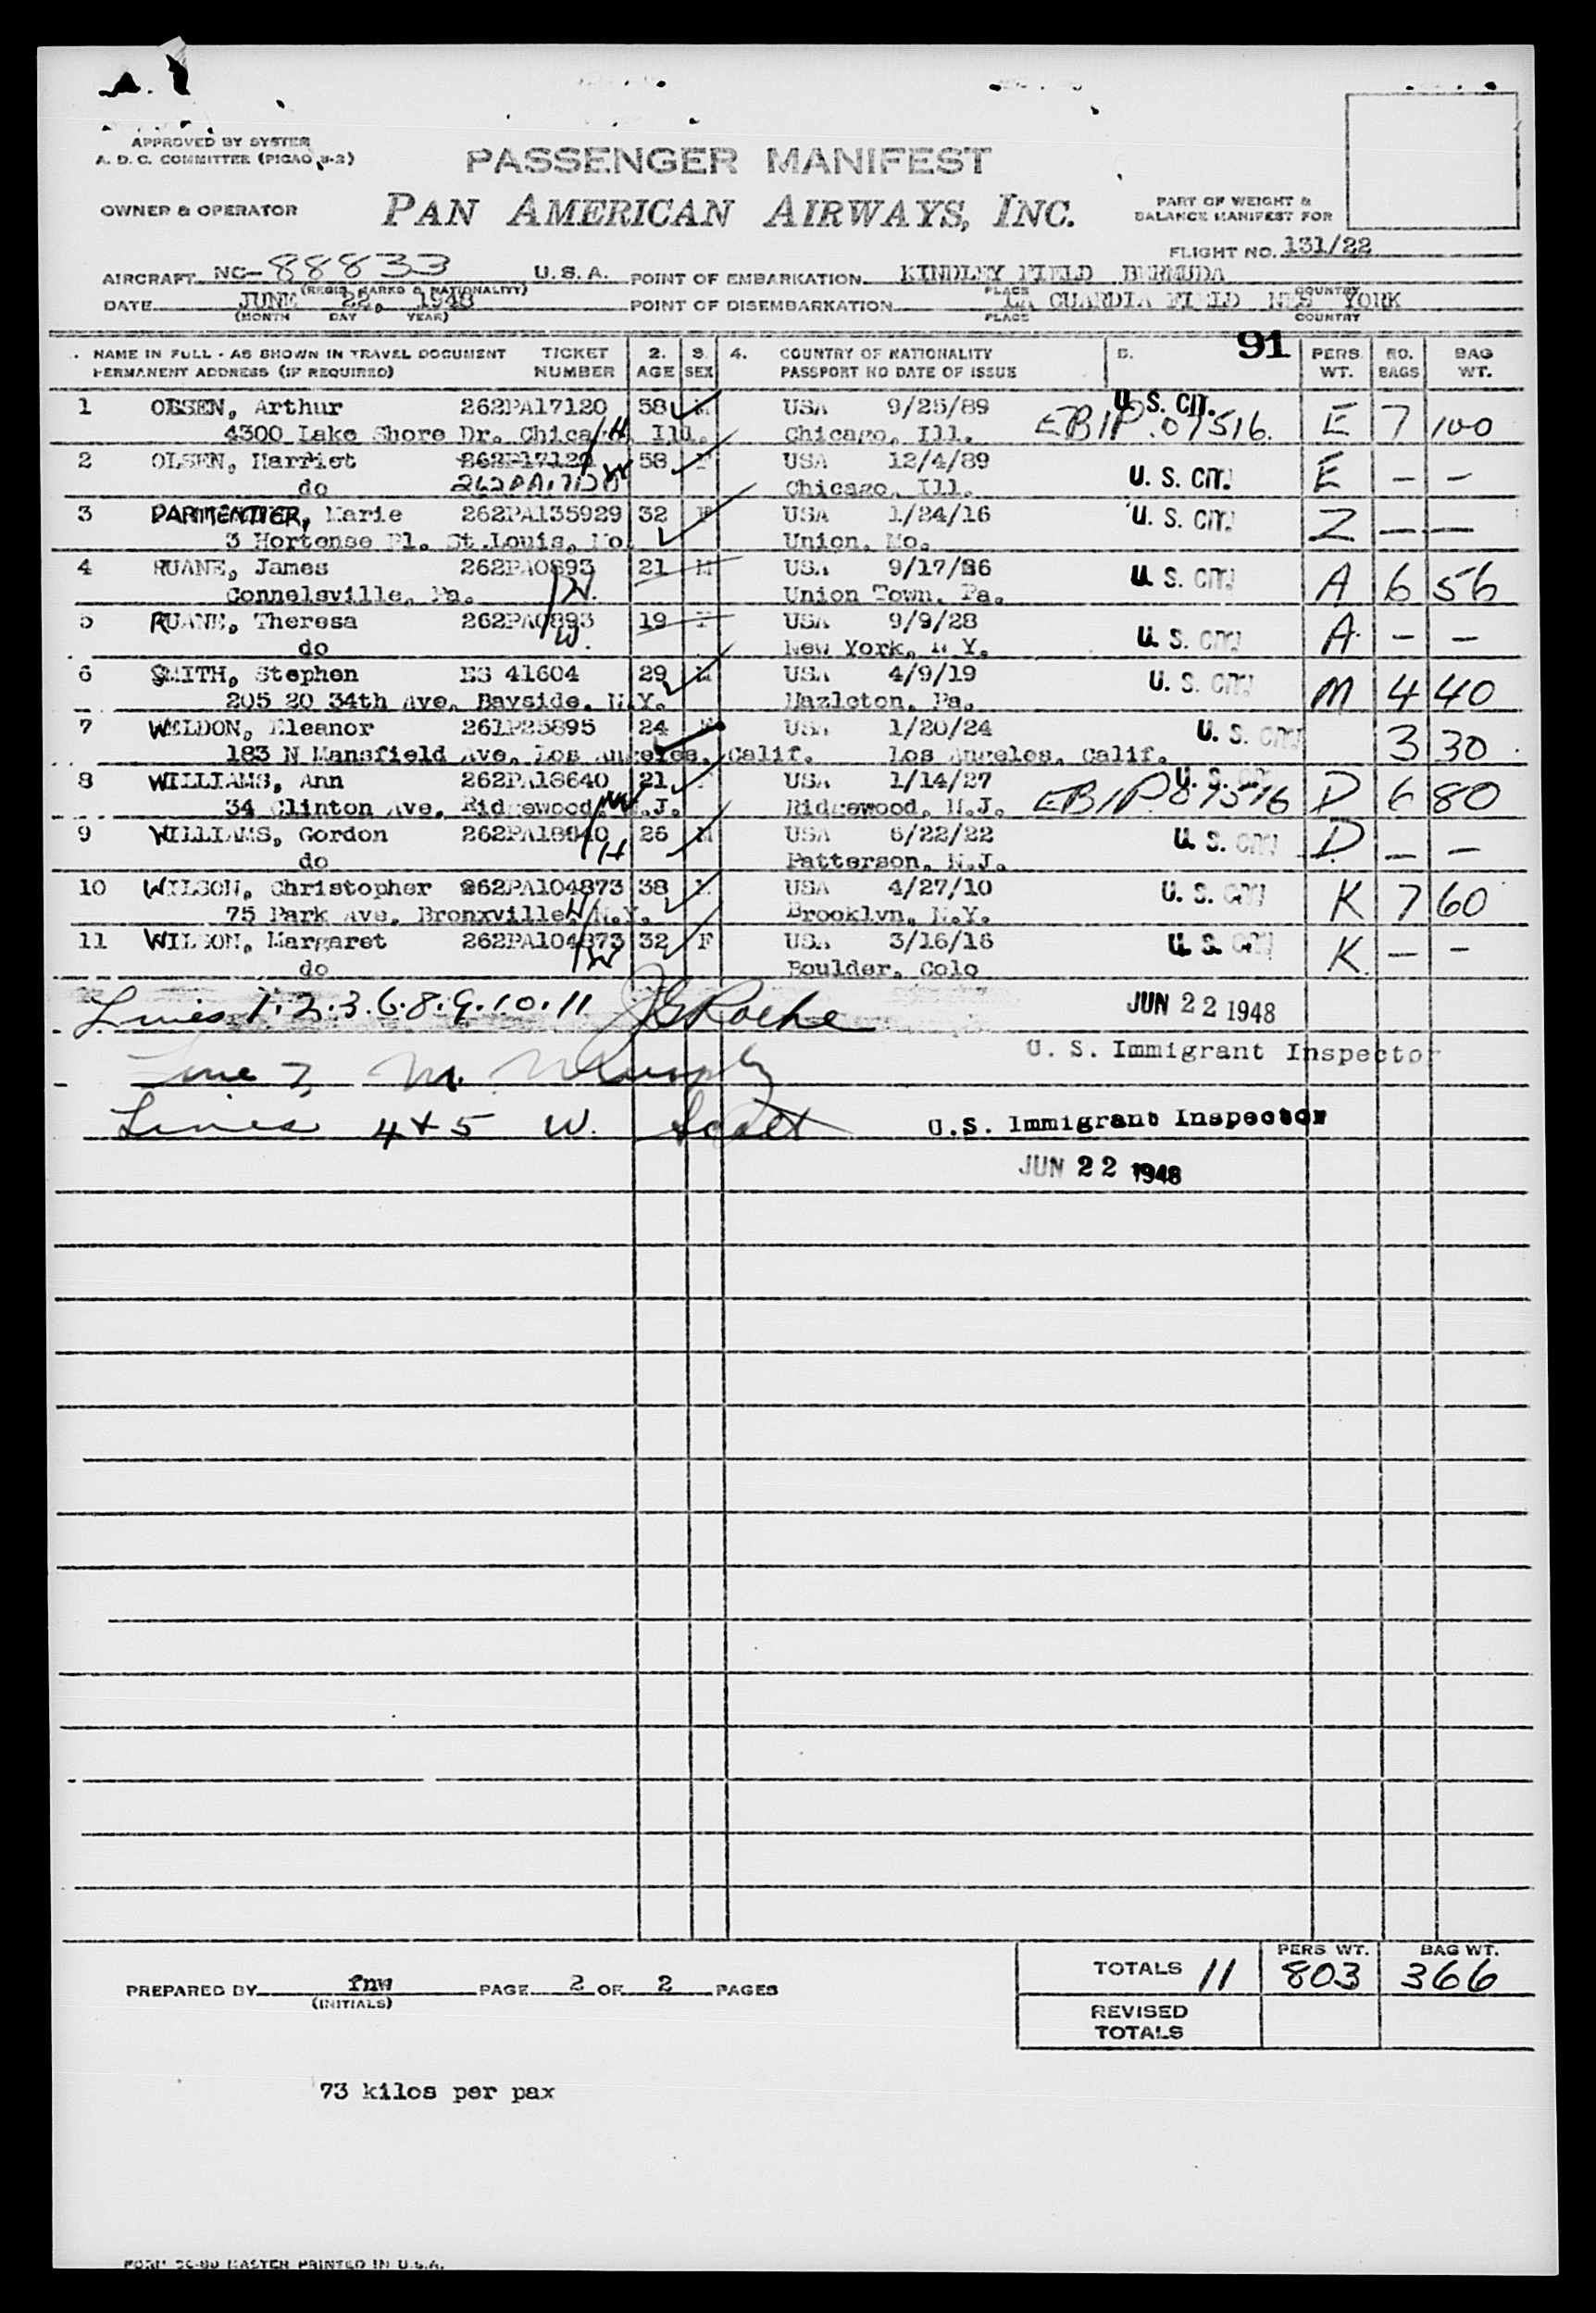 APPROVED BY SYSTEM
A. D. C. COMMITTEE (PICAO 8-2)
PASSENGER MANIFEST
OWNER & OPERATOR
PAN AMERICAN AIRWAYS, INC.
PART OF WEIGHT &
BALANCE MANIFEST FOR
FLIGHT NO. 131/22
AIRCRAFT NC-88833 U.S.A. POINT OF EMBARKATION KINDLEY FIELD BERMUDA
(REGIS. MARKS & NATIONALITY) PLACE COUNTRY
DATE JUNE 22, 1948 POINT OF DISEMBARKATION LA GUARDIA FIELD NEW YORK
(MONTH DAY YEAR) PLACE COUNTRY
91
NAME IN FULL - AS SHOWN IN TRAVEL DOCUMENT TICKET 2. 3. 4. COUNTRY OF NATIONALITY 5. PERS. NO. BAG
PERMANENT ADDRESS (IF REQUIRED) NUMBER AGE SEX PASSPORT NO DATE OF ISSUE WT. BAGS WT.
1 OLSEN, Arthur 262PA17120 58 M USA 9/25/89 U. S. CIT. E 7 100
4300 Lake Shore Dr. Chicago, Ill. H Chicago, Ill. EBIP.07516
2 OLSEN, Harriet 262P17120 58 F USA 12/4/89 U. S. CIT. E – –
do 262PA17120 W Chicago, Ill.
3 PARMENTIER, Marie 262PA135929 32 F USA 1/24/16 U. S. CIT. Z – –
3 Hortense Pl. St.Louis, Mo. Union, Mo.
4 RUANE, James 262PA0893 21 M USA 9/17/26 U. S. CIT. A 6 56
Connelsville, Pa. H. Union Town, Pa.
5 RUANE, Theresa 262PA0893 19 F USA 9/9/28 U. S. CIT. A – –
do W. New York, N.Y.
6 SMITH, Stephen ES 41604 29 M USA 4/9/19 U. S. CIT. M 4 40
205 20 34th Ave, Bayside, N.Y. Hazleton, Pa.
7 WELDON, Eleanor 261P25895 24 F USA 1/20/24 U. S. CIT. 3 30
183 N Mansfield Ave, Los Angeles, Calif. Los Angeles, Calif.
8 WILLIAMS, Ann 262PA18640 21 F USA 1/14/27 U. S. CIT. D 6 80
34 Clinton Ave, Ridgewood, N.J. W Ridgewood, N.J. EBIP.07516
9 WILLIAMS, Gordon 262PA18640 26 M USA 6/22/22 U. S. CIT. D – –
do H Patterson, N.J.
10 WILSON, Christopher 262PA104873 38 M USA 4/27/10 U. S. CIT. K 7 60
75 Park Ave, Bronxville, N.Y. H Brooklyn, N.Y.
11 WILSON, Margaret 262PA104873 32 F USA 3/16/16 U. S. CIT. K – –
do W Boulder, Colo
Lines 1.2.3.6.8.9.10.11 JG Roche JUN 22 1948
U. S. Immigrant Inspector
Line 7, M. Murphy
Lines 4 & 5 W. Scott U.S. Immigrant Inspector
JUN 22 1948
PERS WT. BAG WT.
TOTALS 11 803 366
PREPARED BY fnw PAGE 2 OF 2 PAGES
(INITIALS)
REVISED
TOTALS
73 kilos per pax
MASTER PRINTED IN U.S.A.